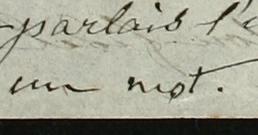 parlais l'
un mot.